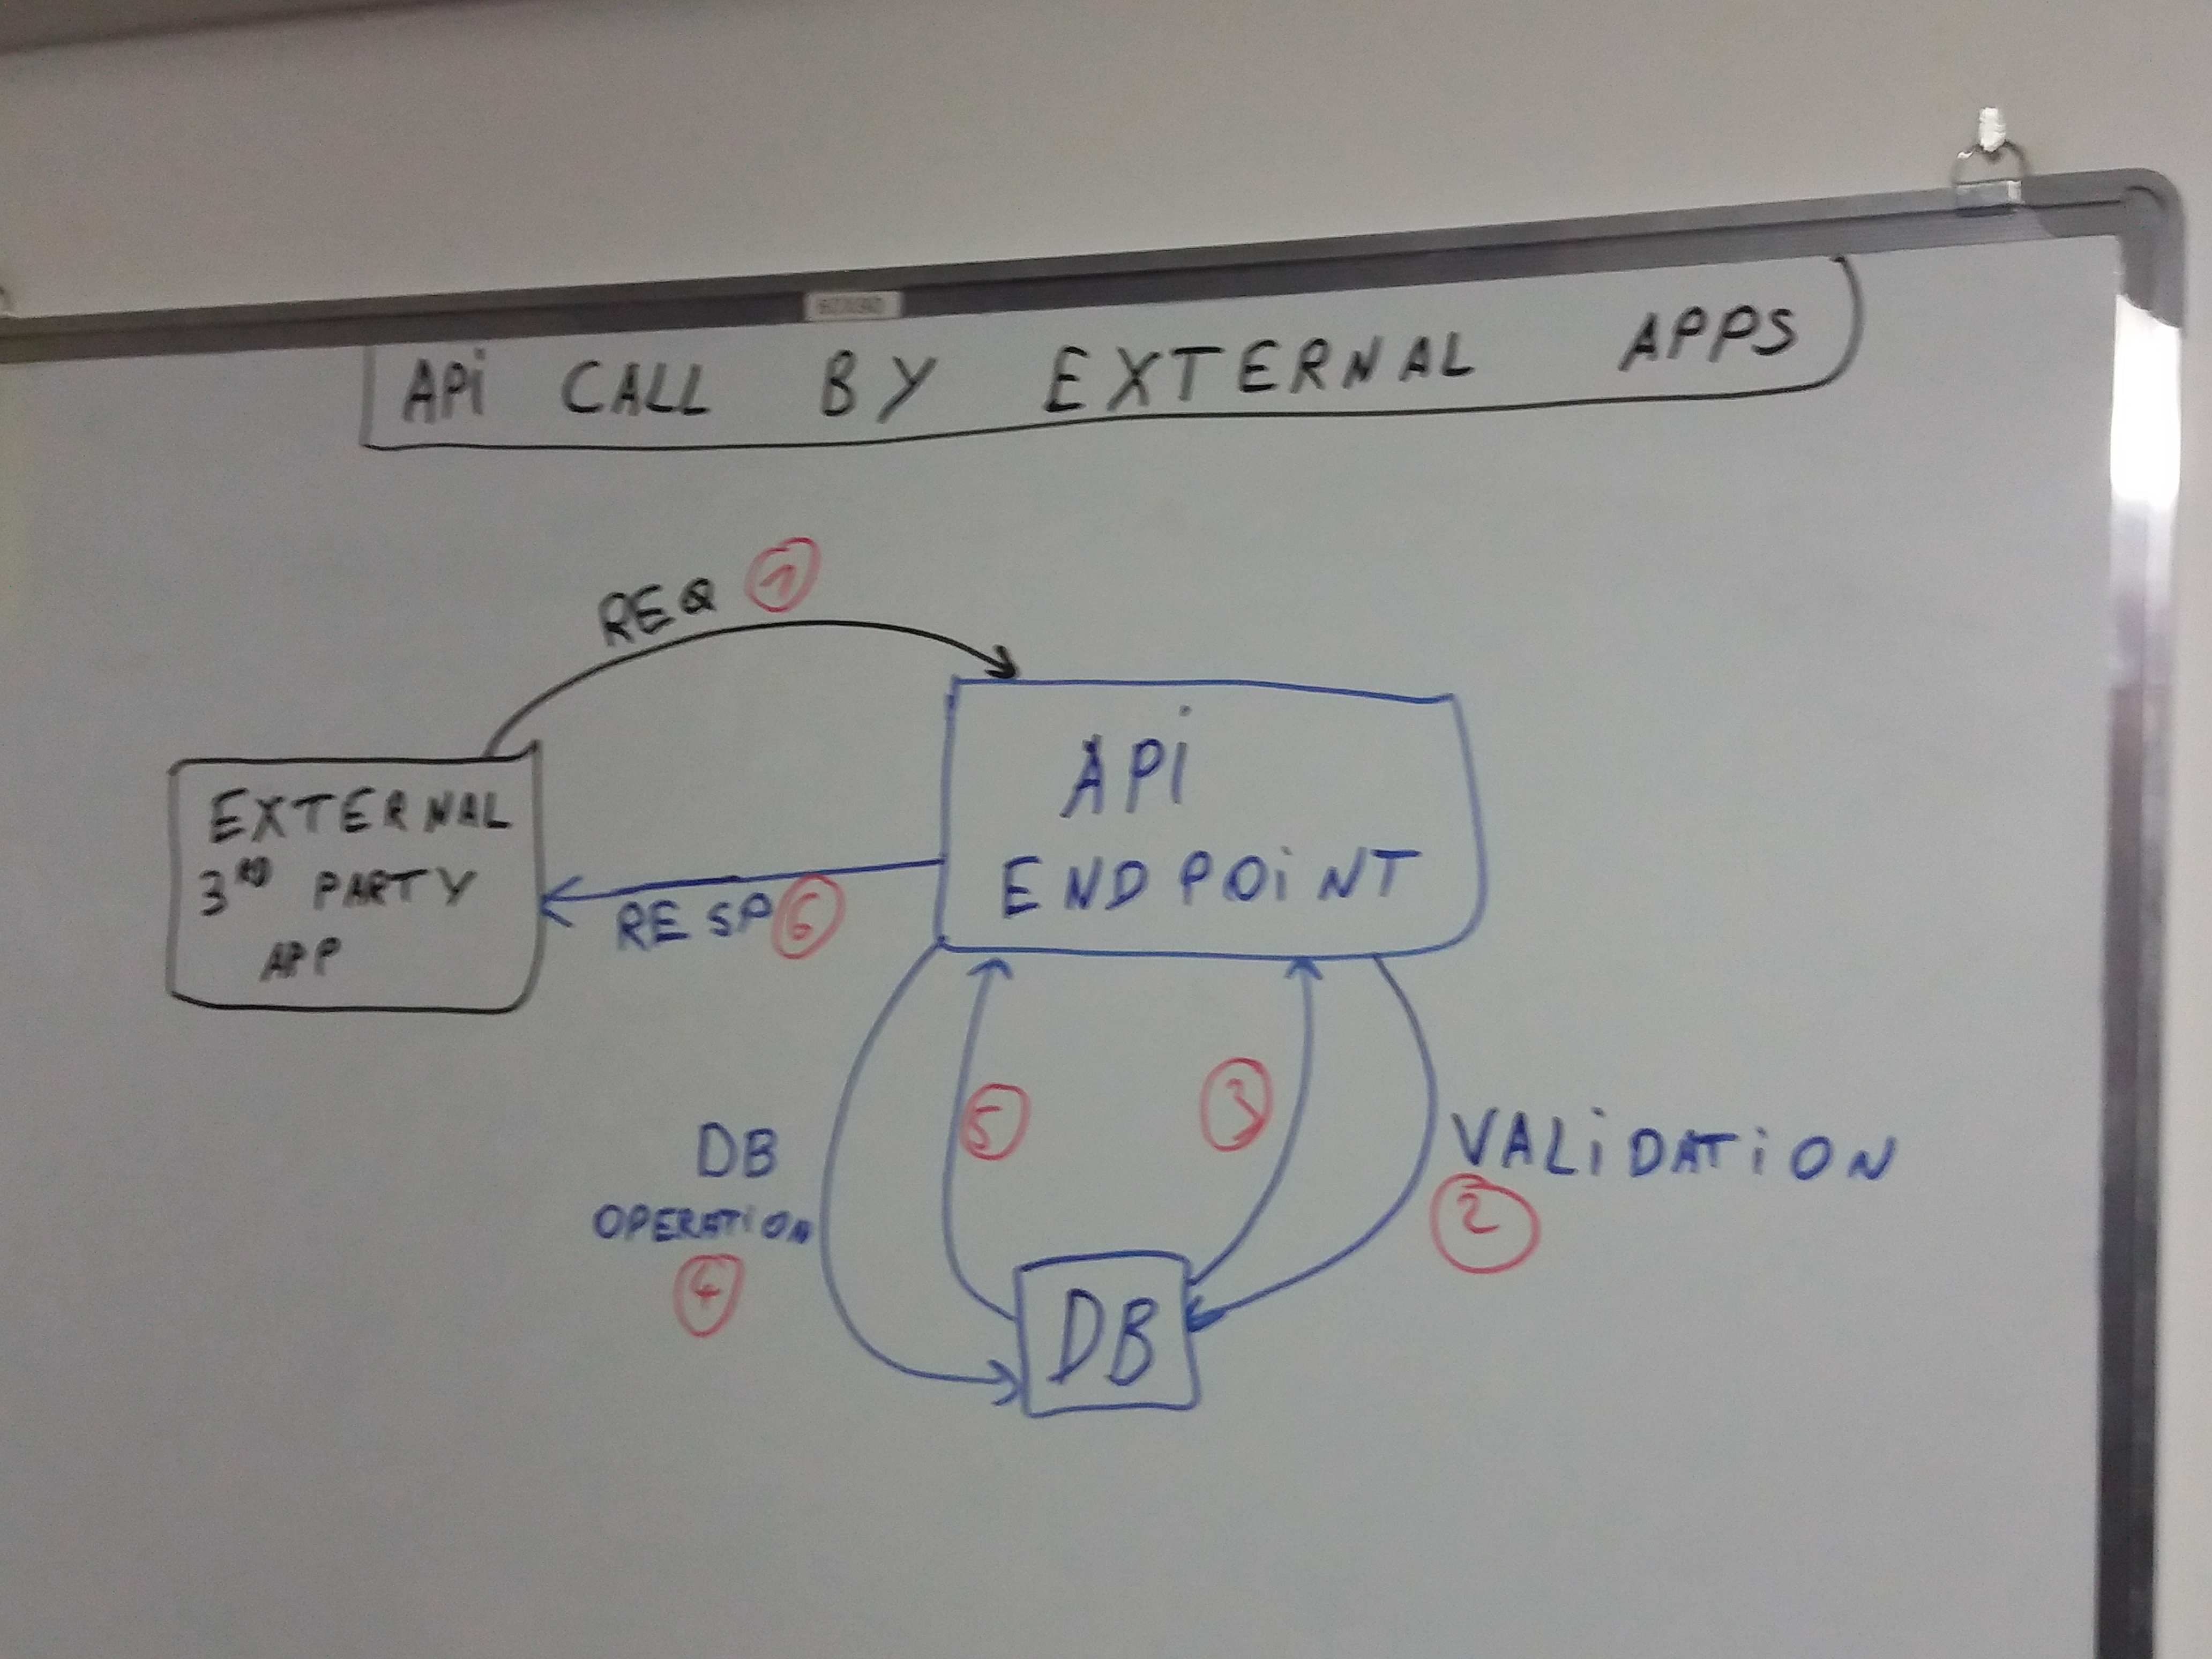 APi CALL BY EXTERNAL APPS
REQ 1
EXTERNAL
3RD PARTY
APP
APi
ENDPOiNT
RESP 6
DB
OPERATiON
4
5
3
VALiDATiON
2
DB